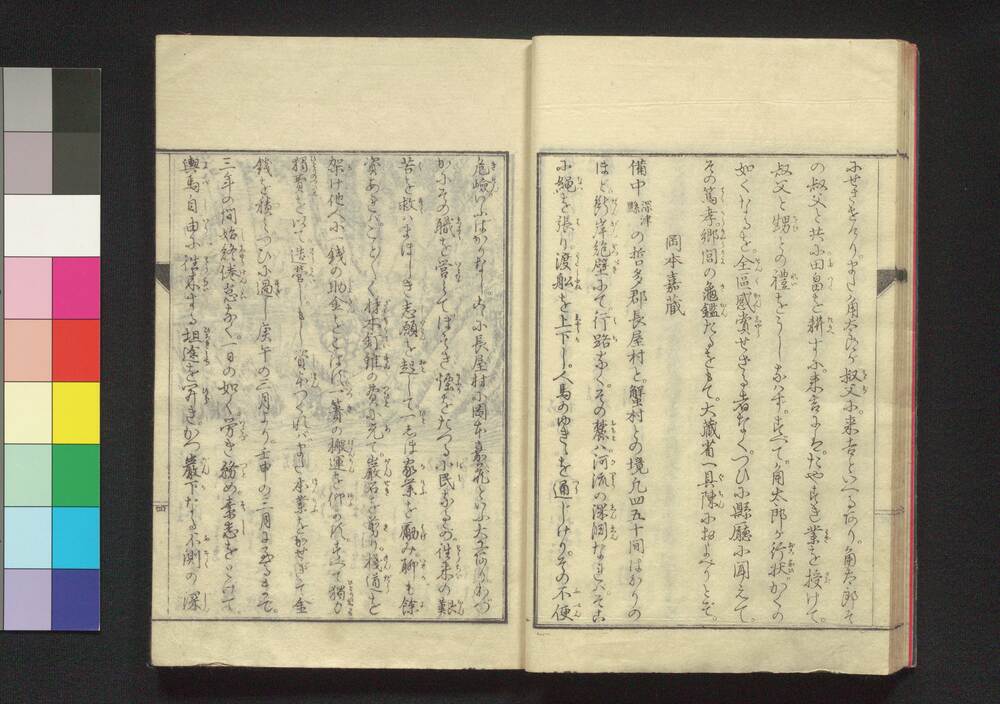 にせきをくりよせ角太郎が叔父に来吉といへるあり角太郎そ
の叔父と共に田畠を耕すに来吉にはたやすき業を授けて
叔父と甥との禮をうしなはずすべて角太郎が行状かくの
如くなるを全區感賞せざる者なくつひに縣廳に聞えて
その篤孝郷閭の龜鑑たるをもて大藏省へ具陳におよべりとぞ
岡本嘉藏
備中深津縣の哲多郡長屋村と蟹村との境凡四五十間ばかりの
ほど斷岸絶壁にて行路なくその麓ハ河流の深淵なれバそこ
に繩を張り渡舩を上下し人馬のゆきゝを通じけりその不便
危嶮いふばかりなし爰に長屋村に岡本嘉藏といふ大工ありわづ
かにその職を営みてほそき煙をたつる小民なれどその往来の艱
苦を救ハまほしき志願を起して一しほ家業を勵み聊も餘
資あれバことごとく材木釘錐の費に充て巖石を剪り棧道を
架け他人に一錢の助金をもとめず一簣の搬運を仰がずすべて獨力
獨費をもて造營しもし資本つくれバまた本業をかせぎて金
錢を積てつひに過し庚午の二月より壬申の二月にいたるまで
三年の間始終倦怠なく一日の如く労き務め素志をとげて
輿馬自由に往来する坦途を開きかつ巖下なる不測の深
四